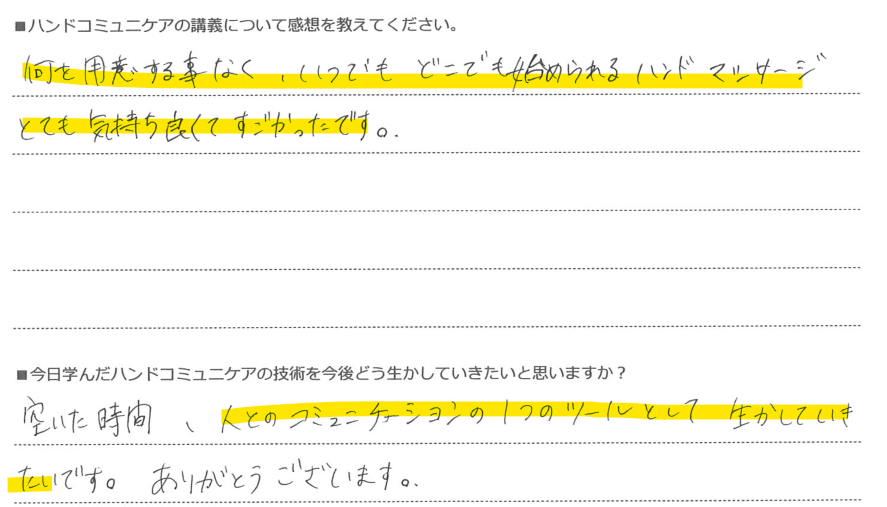 ■ハンドコミュニケアの講義について感想を教えてください。
何を用意する事なく、いつでも どこでも始められる ハンド マッサージ
とても 気持ち良くて すごかったです。
■今日学んだハンドコミュニケアの技術を今後どう生かしていきたいと思いますか？
空いた時間、人とのコミュニケーションの1つのツールとして 生かしていき
たいです。 ありがとうございます。